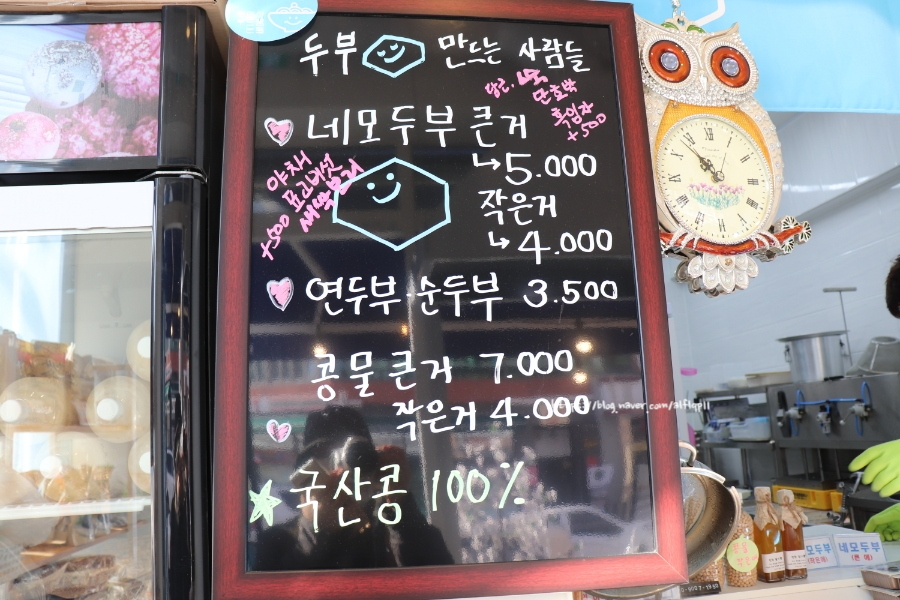 두부 만드는 사람들
당근, 쑥
단호박
흑임자
+500
네모두부 큰거
↳ 5.000
야채
표고버섯
새싹보리
+500
작은거
↳ 4.000
연두부·순두부 3.500
콩물 큰거 7.000
작은거 4.000
국산콩 100%
네모두부